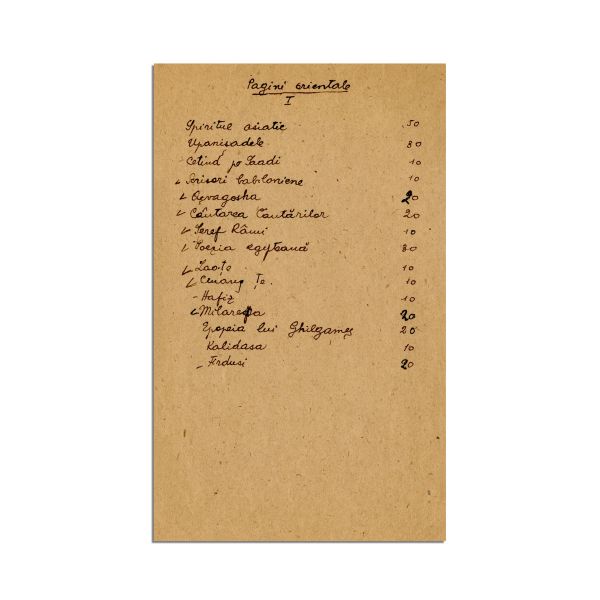 Pagini orientale
I
Spiritul asiatic 50
Upanișadele 80
Cetind pe Saadi 10
Scrisori babiloniene 10
Açvagosha 20
Căutarea Căutărilor 20
Seref Râmi 10
Poezia egipteană 80
Laoțe 10
Ciuang Țe 10
- Hafiz 10
Milarepa 20
Epopeia lui Ghilgameș 20
Kalidasa 10
- Firdusi 20